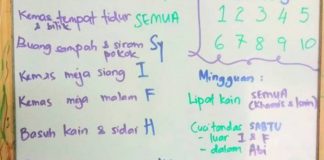 Kemas tempat tidur SEMUA
& bilik
Buang sampah & siram Sy
pokok
Kemas meja siang I
Kemas meja malam F
Basuh kain & sidai H
1 2 3 4 5
6 7 8 9 10
Mingguan :
Lipat kain SEMUA
(Khamis & lain)
Cuci tandas SABTU
- luar I & F
- dalam Abi